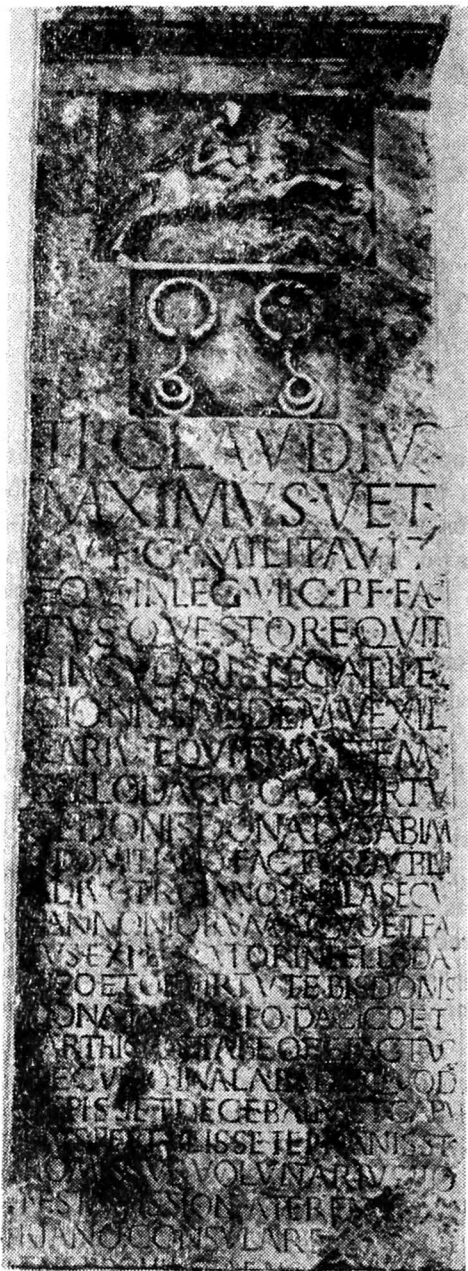 TI·CLAVDIVS
MAXIMVS·VET·
V·F·C·MILITAVIT
EQVE·IN·LEG·VII·C·P·F·FAC
TVS·QVESTOR·EQVIT
SINGVLARIS·LEGATI·LE
GIONIS·EIVSDEM·VEXIL
LARIVS·EQVITVM·ITEM
BELLO·DACICO·OB·VIRTV
TE·DONIS·DONATVS·AB·IM
DOMITIANO·FACTVS·DVPLI
A·DIVO·TROIANO·IN·ALA·SECVD
PANNONIORVM·A·QVO·ET·FA
TVS·EXPLORATOR·IN·BELLO·DA
CICO·ET·OB·VIRTVTE·BIS·DONIS
DONATVS·BELLO·DACICO·ET
PARTHICO·ET·AB·EODE·FACTVS
DECVRIO·IN·ALA·EADE·QVOD
CEPISSET·DECEBALV·ET·CAPVT
EIVS·PERTVLISSET·EI·RANISSTO
RO·MISSVS·VOLVNTARIVS·HO
NESTA·MISSIONE·A·TERENT
RIANO·CONSVLARE